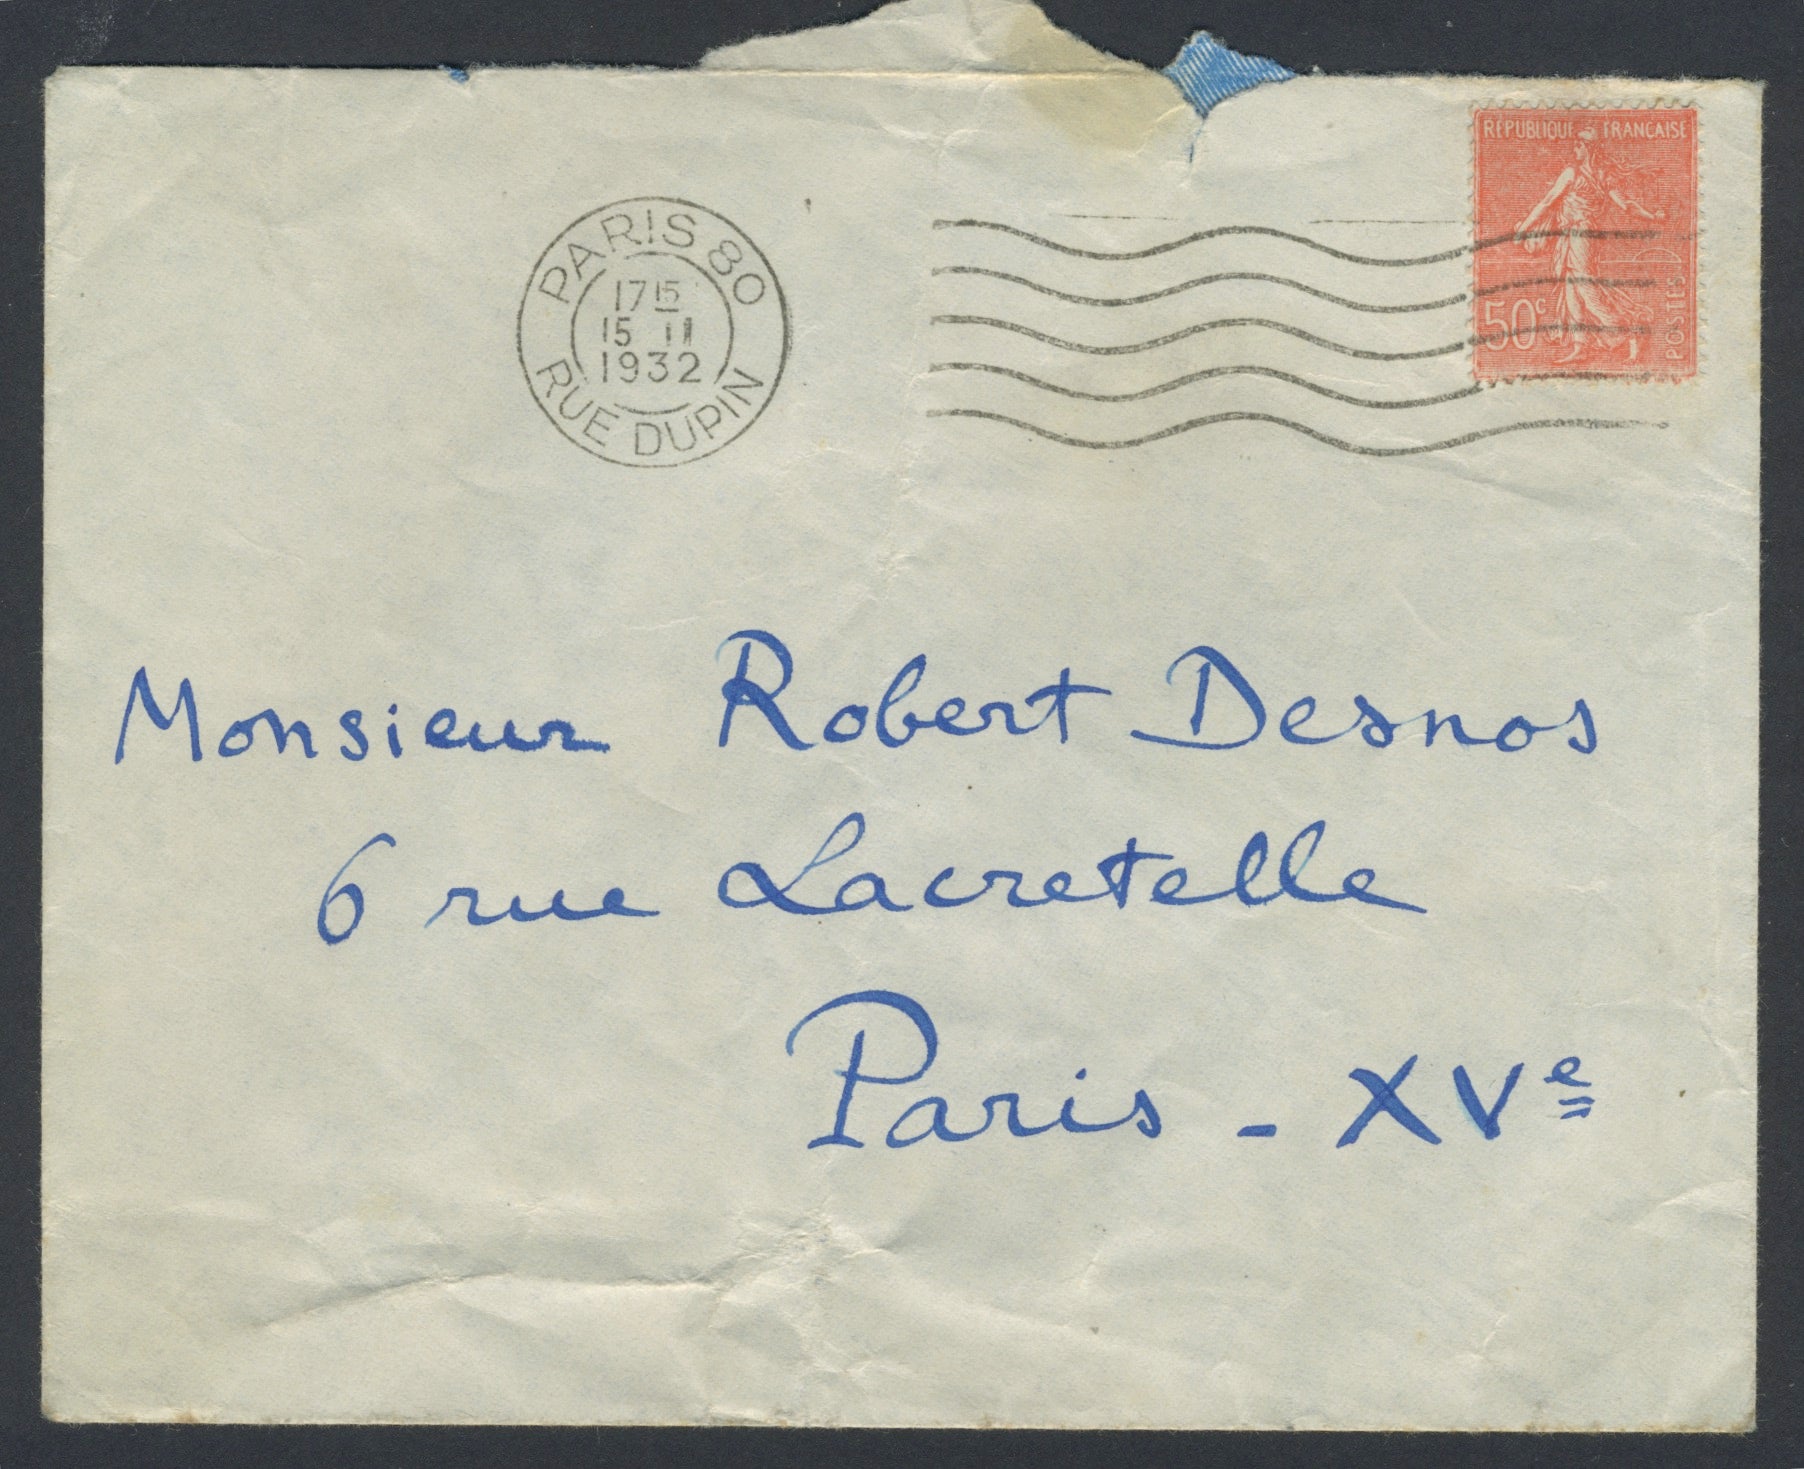 RÉPUBLIQUE FRANÇAISE
50c
POSTES
PARIS 80
17 15
15 II
1932
RUE DUPIN
Monsieur Robert Desnos
6 rue Lacretelle
Paris - XVe